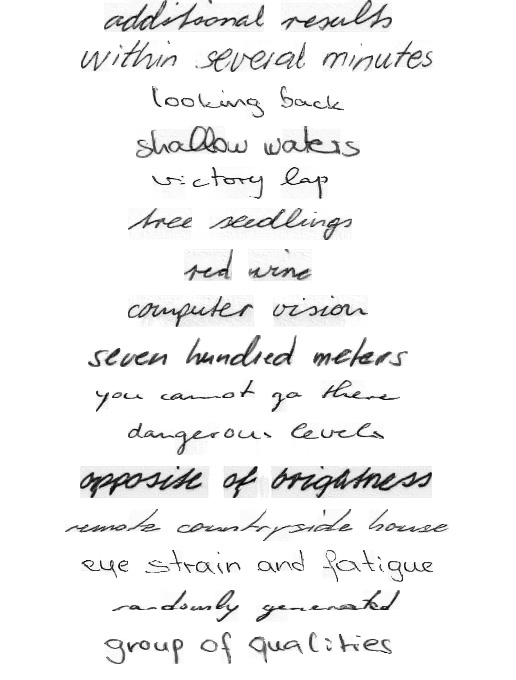 additional results
within several minutes
looking back
shallow waters
victory lap
tree seedlings
red wine
computer vision
seven hundred meters
you cannot go there
dangerous levels
opposite of brightness
remote countryside house
eye strain and fatigue
randomly generated
group of qualities